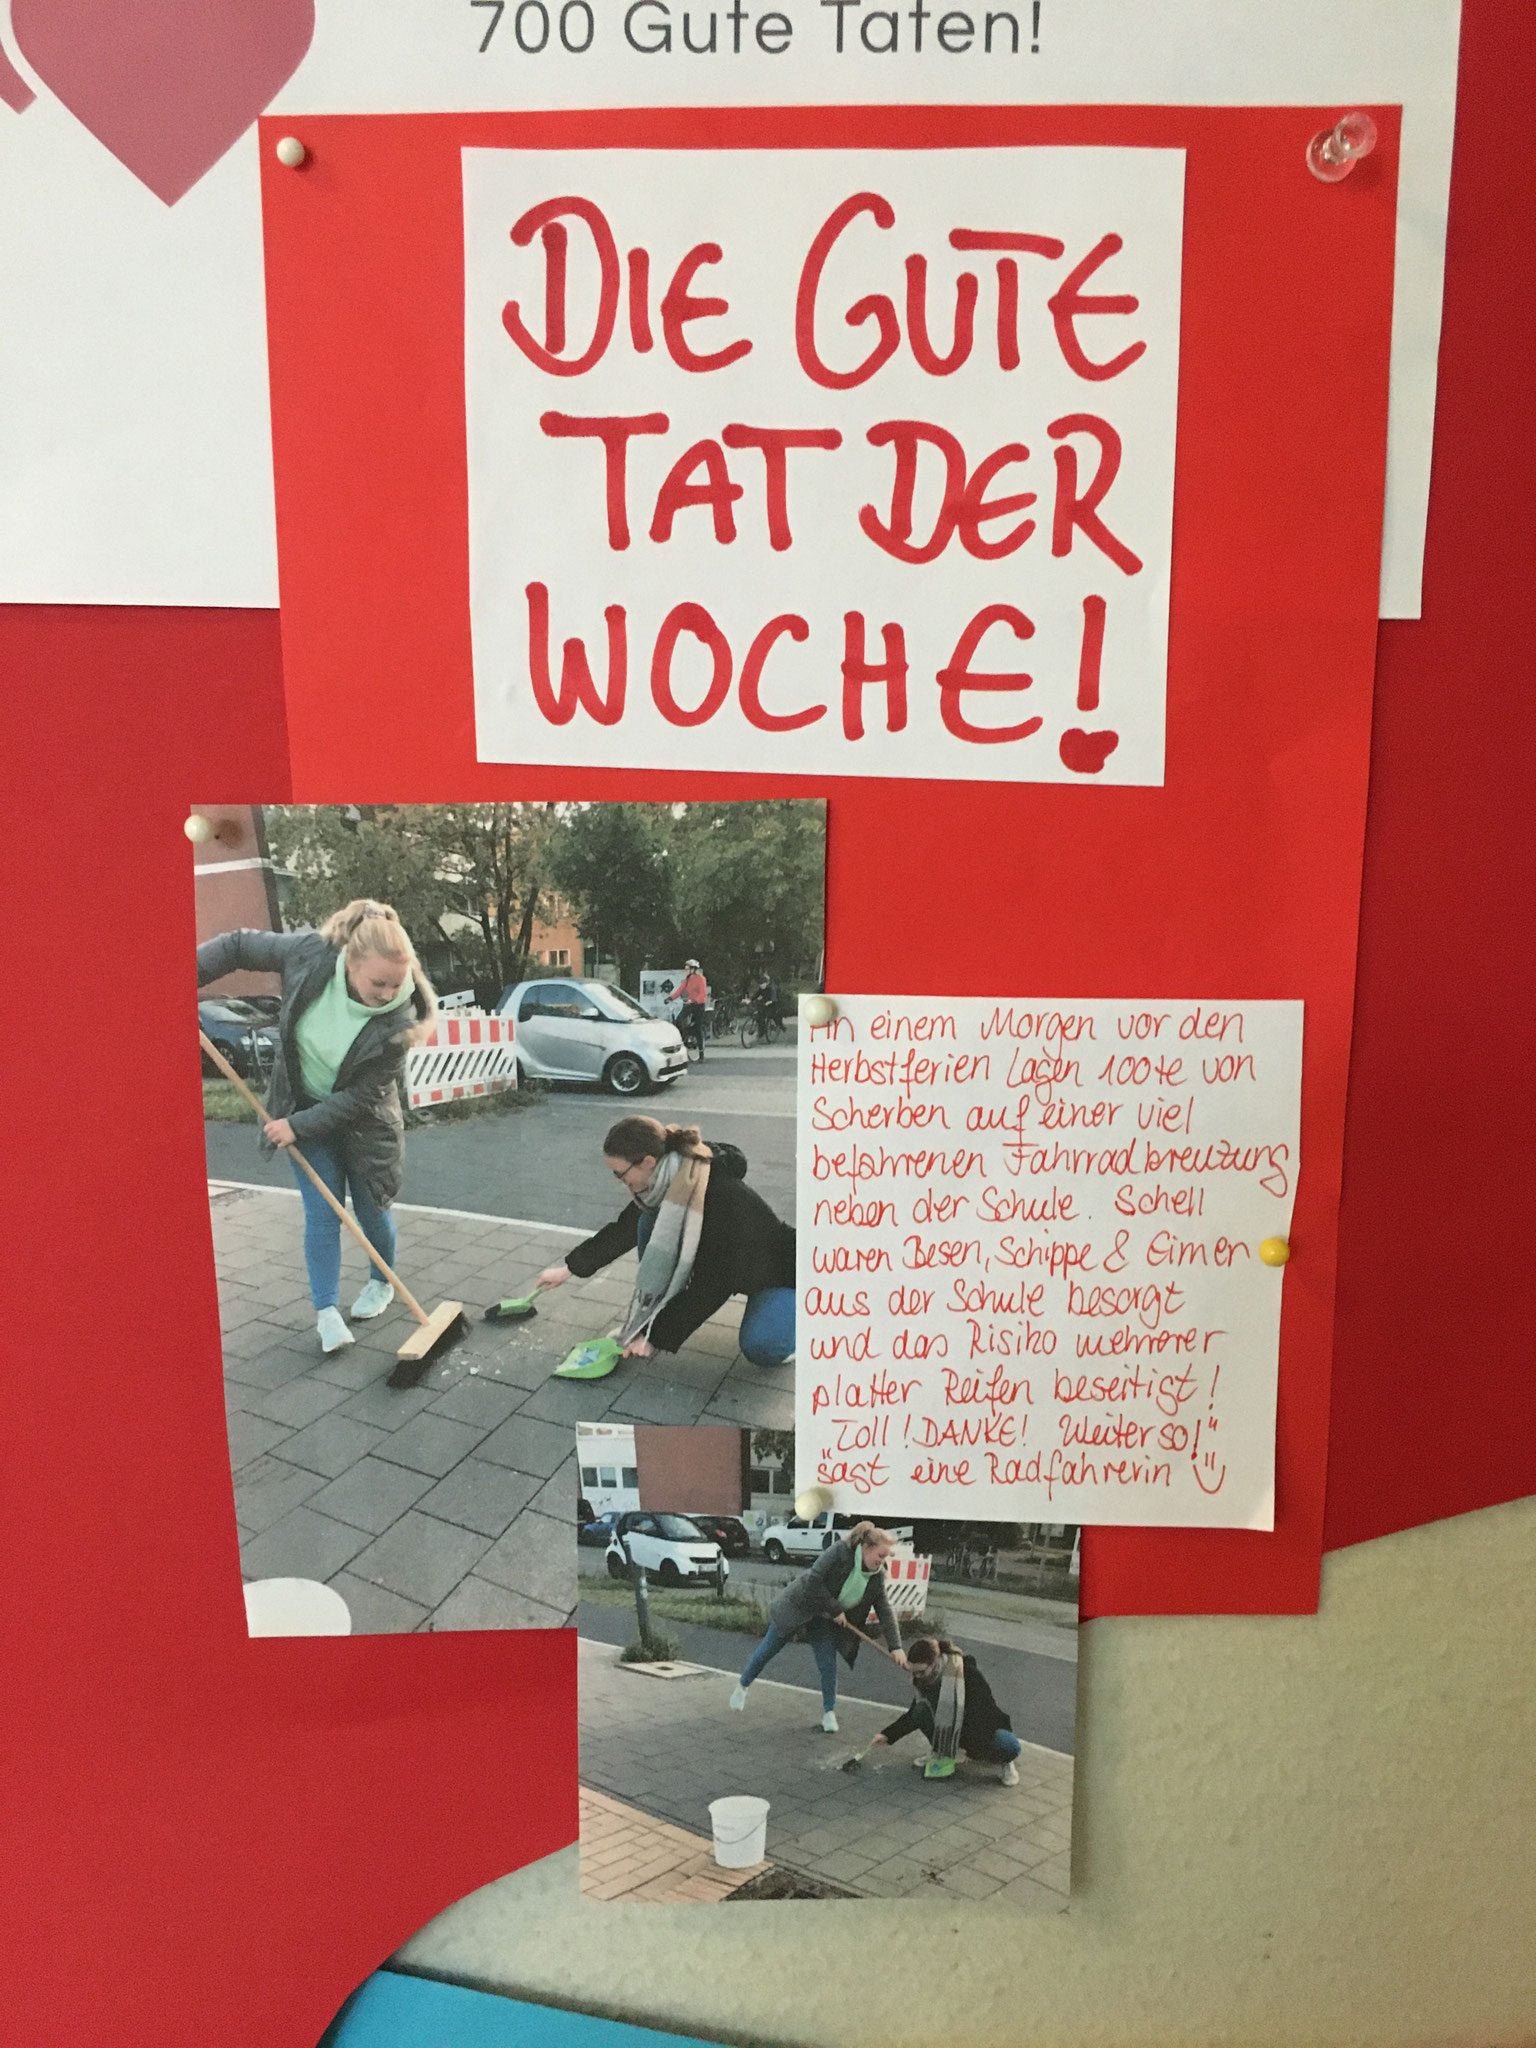 700 Gute Taten!
DIE GUTE
TAT DER
WOCHE!
An einem Morgen vor den
Herbstferien lagen 100te von
Scherben auf einer viel
befahrenen Fahrradkreuzung
neben der Schule. Schell
waren Besen, Schippe & Eimer
aus der Schule besorgt
und das Risiko mehrerer
platter Reifen beseitigt!
„Toll! DANKE! Weiter so!"
sagt eine Radfahrerin